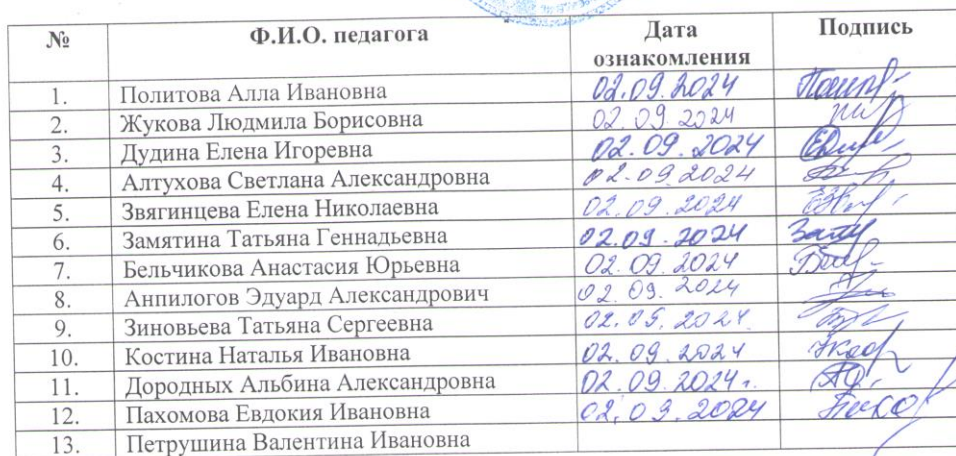 № Ф.И.О. педагога Дата ознакомления Подпись
1. Политова Алла Ивановна 02.09.2024
2. Жукова Людмила Борисовна 02.09.2024
3. Дудина Елена Игоревна 02.09.2024
4. Алтухова Светлана Александровна 02.09.2024
5. Звягинцева Елена Николаевна 02.09.2024
6. Замятина Татьяна Геннадьевна 02.09.2024
7. Бельчикова Анастасия Юрьевна 02.09.2024
8. Анпилогов Эдуард Александрович 02.09.2024
9. Зиновьева Татьяна Сергеевна 02.09.2024
10. Костина Наталья Ивановна 02.09.2024
11. Дородных Альбина Александровна 02.09.2024г.
12. Пахомова Евдокия Ивановна 02.09.2024
13. Петрушина Валентина Ивановна